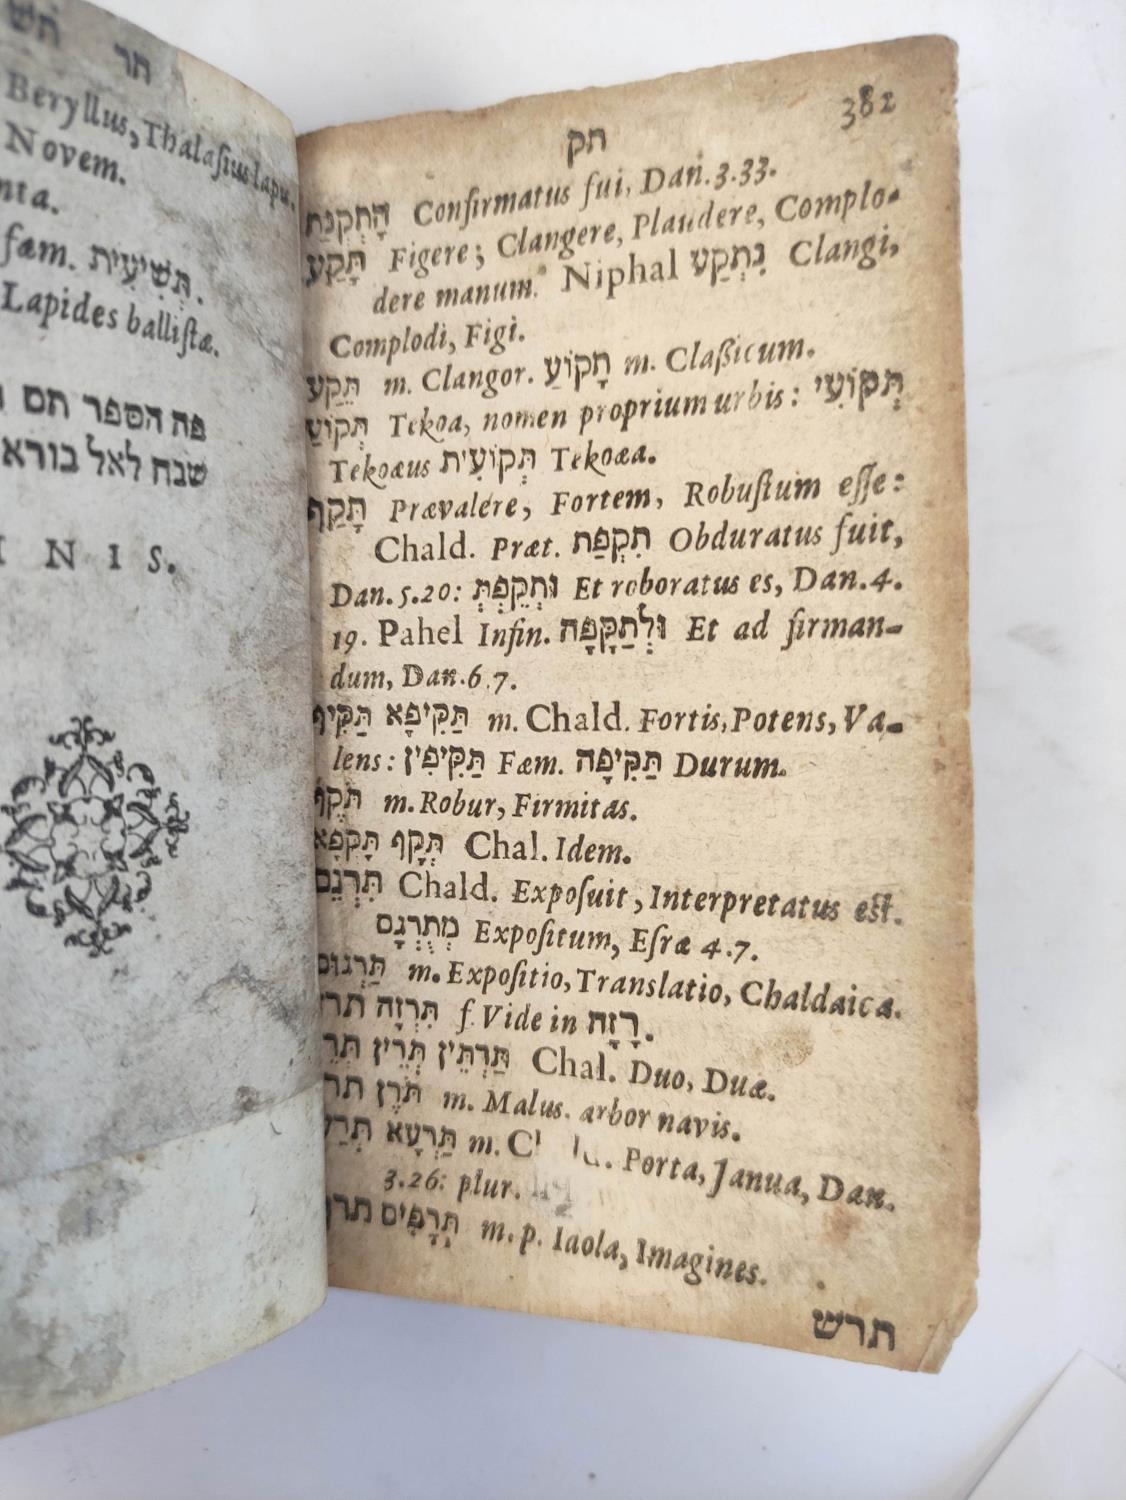 חר תש
Beryllus, Thalaſius lapis.
Novem.
nta.
fæm. תְּשִׁיעִית.
Lapides balliſtæ.
פה הספר תם
שבח לאל בורא
INIS.
382
תק
הָתְקְנַת Confirmatus fui, Dan. 3.33.
תָּקַע Figere; Clangere, Plaudere, Complo-
dere manum. Niphal נִתְקַע Clangi,
Complodi, Figi.
תֵּקַע m. Clangor. תָּקוֹעַ m. Claßicum.
תְּקוֹעַ Tekoa, nomen proprium urbis: תְּקוֹעִי
Tekoæus תְּקוֹעִית Tekoæa.
תָּקַף Prævalére, Fortem, Robuſtum eſſe:
Chald. Præt. תִּקְפַת Obduratus fuit,
Dan. 5.20: וּתְקֵפְתְּ Et roboratus es, Dan. 4.
19. Pahel Infin. וּלְתַקָּפָה Et ad firman-
dum, Dan. 6.7.
תַּקִּיף תַּקִּיפָא m. Chald. Fortis, Potens, Va-
lens: תַּקִּיפִין Fæm. תַּקִּיפָה Durum.
תֹּקֶף m. Robur, Firmitas.
תְּקָף תָּקְפָּא Chal. Idem.
תִּרְגֵּם Chald. Expoſuit, Interpretatus eſt.
מְתֻרְגָּם Expoſitum, Eſræ 4.7.
תַּרְגּוּם m. Expoſitio, Translatio, Chaldaica.
תרז תִּרְזָה f. Vide in רָזָה.
תְּרֵין תַּרְתֵּין Chal. Duo, Duæ.
תֹּרֶן m. Malus. arbor navis.
תְּרַע תַּרְעָא m. Porta, Janua, Dan.
3.26: plur.
תרף תְּרָפִים m. p. Idola, Imagines.
תרש